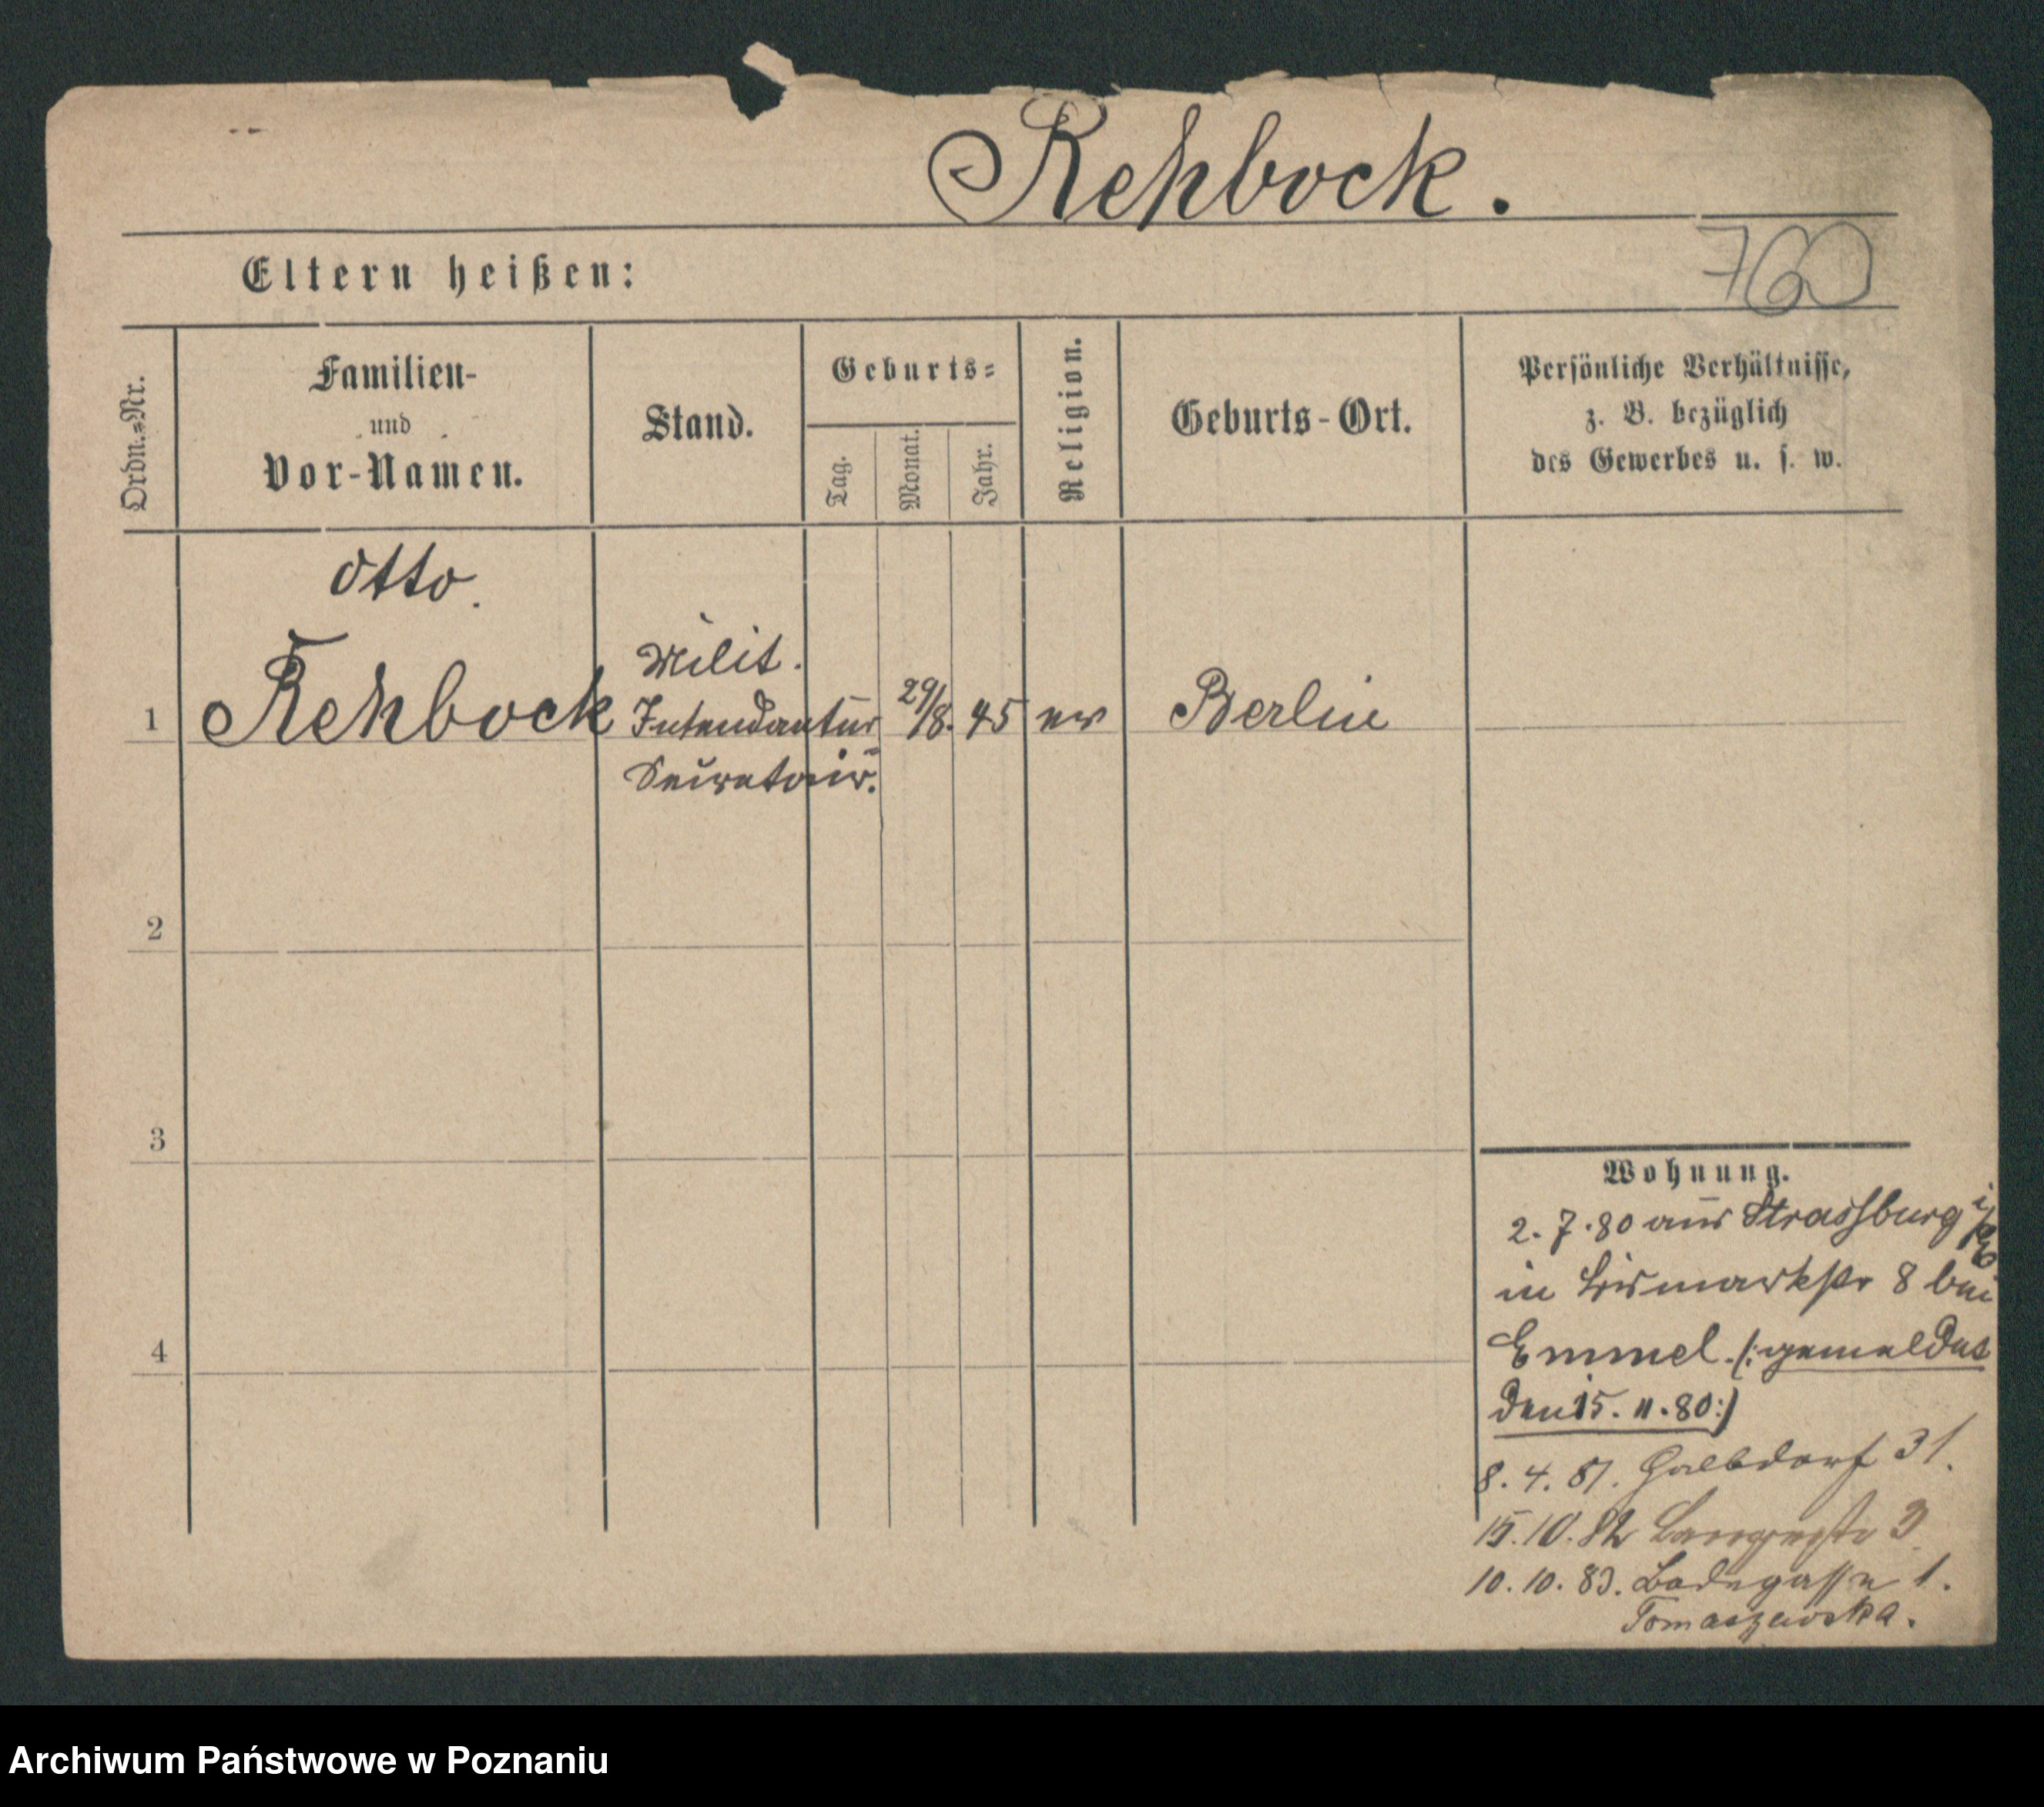 Rehbock.
Eltern heißen:
760
Ordn.=Nr.
Familien-
und
Vor-Namen.
Stand.
Geburts=
Tag.
Monat.
Jahr.
Religion.
Geburts-Ort.
Persönliche Verhältnisse,
z. B. bezüglich
des Gewerbes u. s. w.
Otto.
1 Rehbock
Milit.
Intendantur
Secretair.
29/8. 45 ev Berlin
2
3
4
Wohnung.
2. 7. 80 aus Strassburg i/E
in Bismarkstr 8 bei
Emmel. (: gemeldet
den 15. 11. 80:)
8. 4. 81. Halbdorf 31.
15. 10. 82 Langestr 3
10. 10. 83. Badegasse 1.
Tomaszewska.
Archiwum Państwowe w Poznaniu